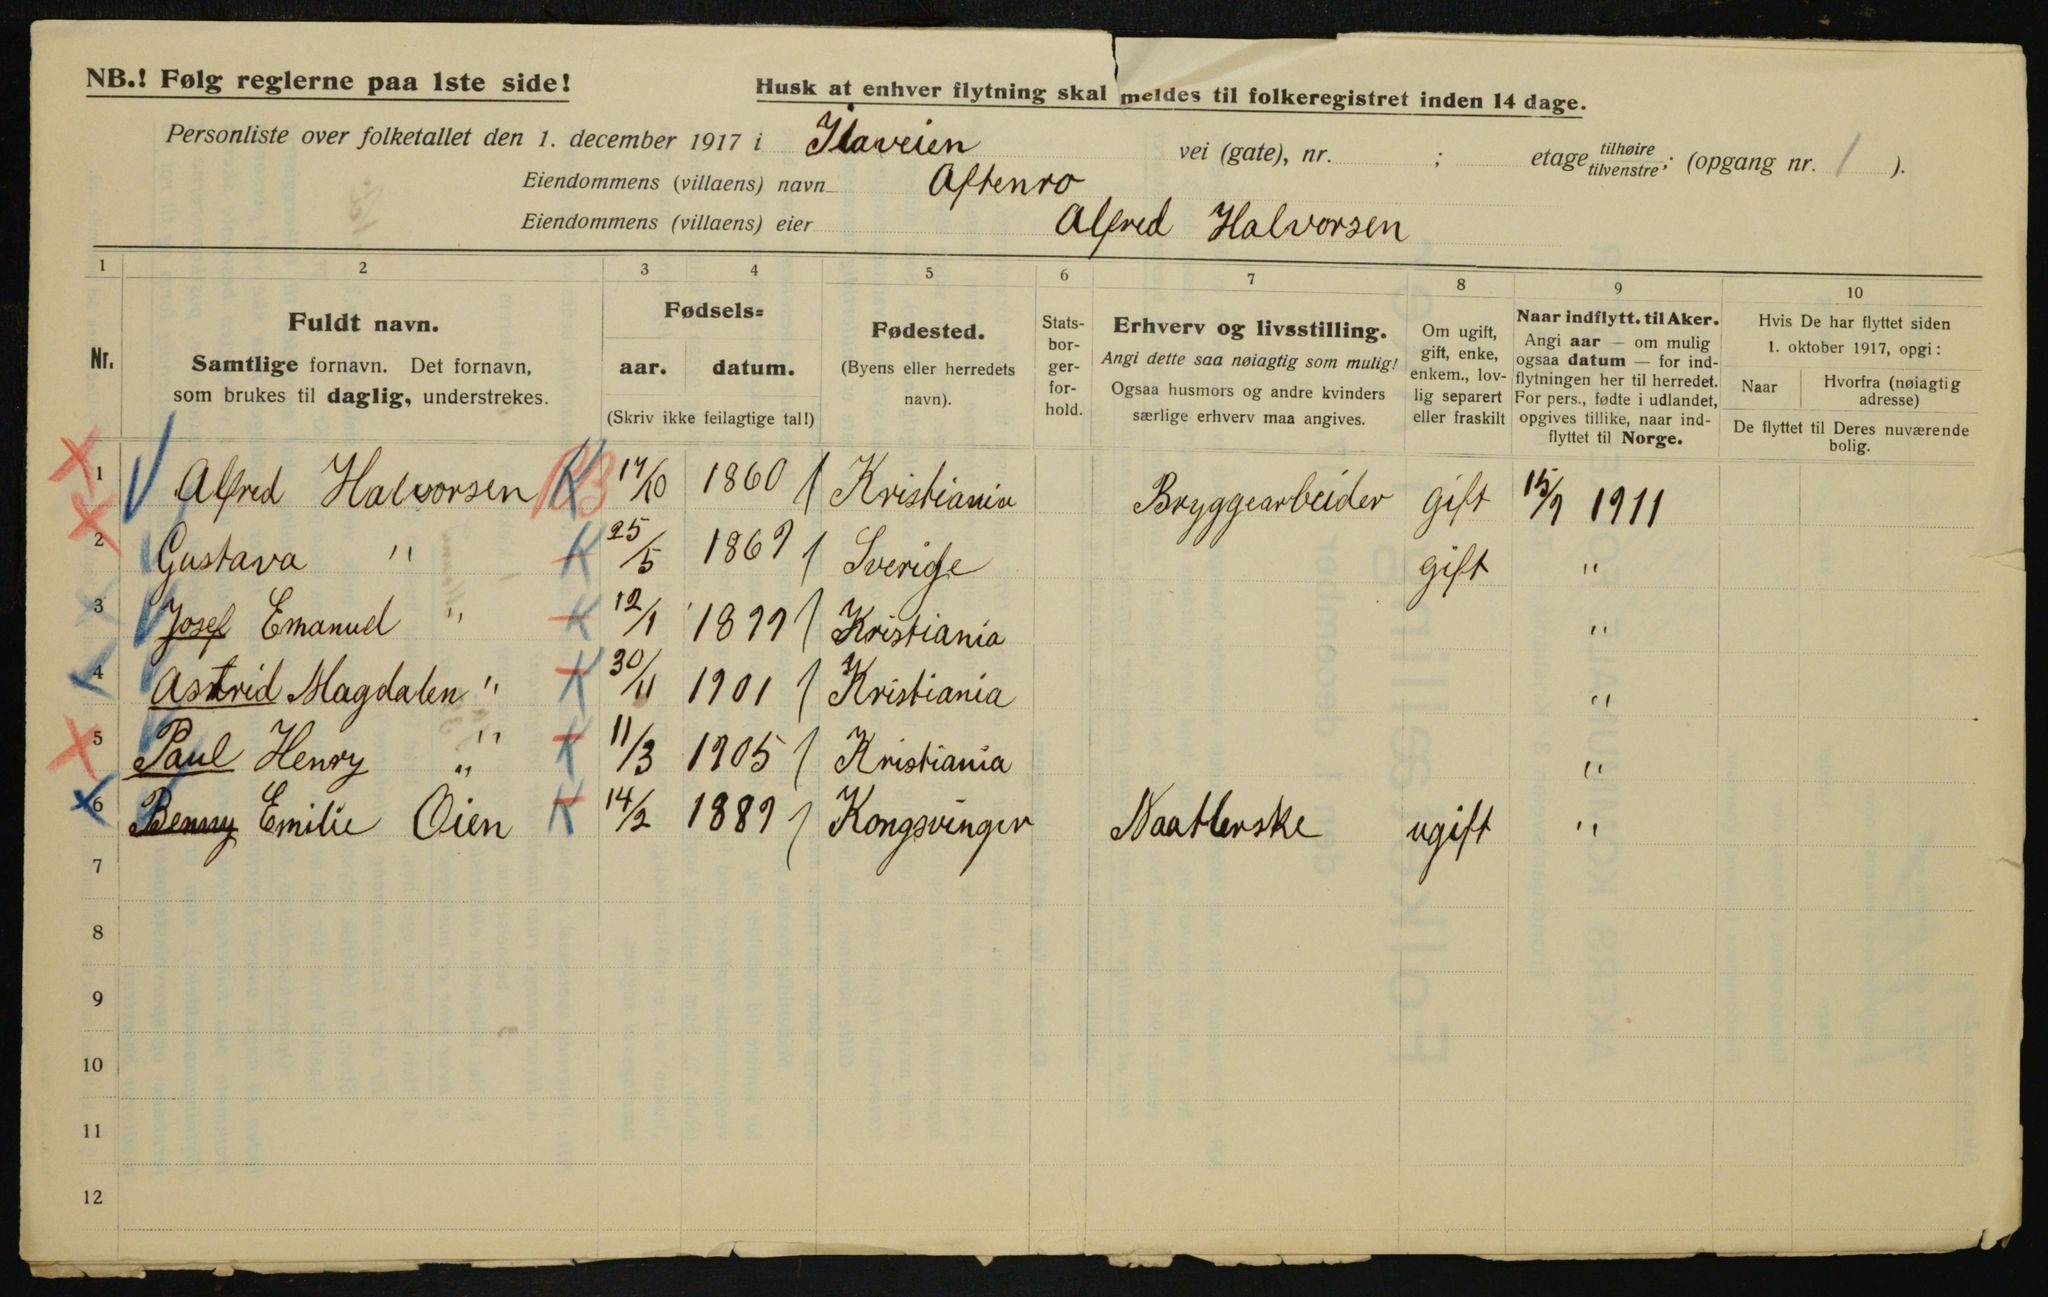 NB.! Følg reglerne paa 1ste side!
Husk at enhver flytning skal meldes til folkeregistret inden 14 dage.
Personliste over folketallet den 1. december 1917 i Ilaveien vei (gate), nr. ; etage tilhøire tilvenstre; (opgang nr. 1 ).
Eiendommens (villaens) navn Aftenro
Eiendommens (villaens) eier Alfred Halvorsen
1 2 3 4 5 6 7 8 9 10
Nr.
Fuldt navn.
Samtlige fornavn. Det fornavn,
som brukes til daglig, understrekes.
Fødsels=
aar. datum.
(Skriv ikke feilagtige tal!)
Fødested.
(Byens eller herredets
navn).
Stats-
bor-
ger-
for-
hold.
Erhverv og livsstilling.
Angi dette saa nøiagtig som mulig!
Ogsaa husmors og andre kvinders
særlige erhverv maa angives.
Om ugift,
gift, enke,
enkem., lov-
lig separert
eller fraskilt
Naar indflytt. til Aker.
Angi aar — om mulig
ogsaa datum — for ind-
flytningen her til herredet.
For pers., fødte i udlandet,
opgives tillike, naar ind-
flyttet til Norge.
Hvis De har flyttet siden
1. oktober 1917, opgi:
Naar
Hvorfra (nøiagtig
adresse)
De flyttet til Deres nuværende
bolig.
1 Alfred Halvorsen K 17/10 1860 Kristiania Bryggearbeider gift 15/9 1911
2 Gustava " K 25/5 1869 Sverige gift "
3 Josef Emanuel " K 12/1 1899 Kristiania "
4 Astrid Magdalen " K 30/11 1901 Kristiania "
5 Paul Henry " K 11/3 1905 Kristiania "
6 Benny Emilie Oien K 14/2 1889 Kongsvinger Naatlerske ugift "
7
8
9
10
11
12